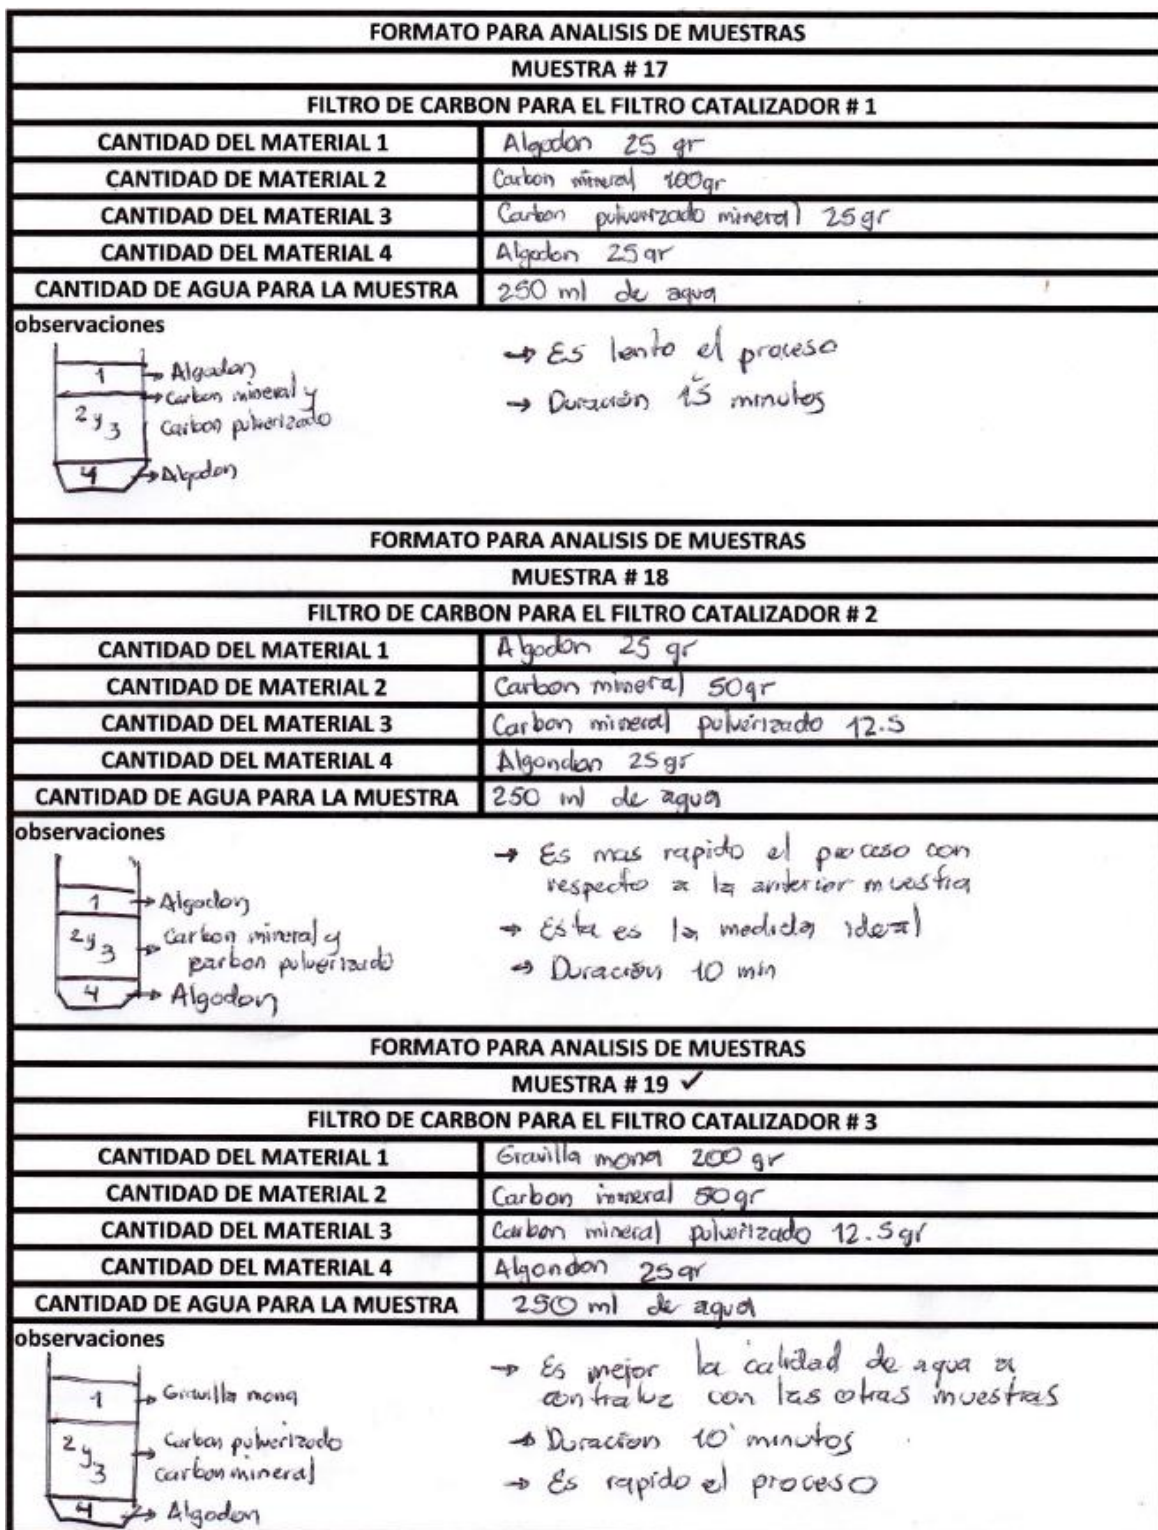 FORMATO PARA ANALISIS DE MUESTRAS
MUESTRA # 17
FILTRO DE CARBON PARA EL FILTRO CATALIZADOR # 1
CANTIDAD DEL MATERIAL 1 Algodon 25 gr
CANTIDAD DE MATERIAL 2 Carbon mineral 100gr
CANTIDAD DEL MATERIAL 3 Carbon pulverizado mineral 25gr
CANTIDAD DEL MATERIAL 4 Algodon 25gr
CANTIDAD DE AGUA PARA LA MUESTRA 250 ml de agua
observaciones
1 → Algodon
2 y 3 → Carbon mineral y
Carbon pulverizado
4 → Algodon
→ Es lento el proceso
→ Duración 15 minutos
FORMATO PARA ANALISIS DE MUESTRAS
MUESTRA # 18
FILTRO DE CARBON PARA EL FILTRO CATALIZADOR # 2
CANTIDAD DEL MATERIAL 1 Algodon 25 gr
CANTIDAD DE MATERIAL 2 Carbon mineral 50gr
CANTIDAD DEL MATERIAL 3 Carbon mineral pulverizado 12.5
CANTIDAD DEL MATERIAL 4 Algondon 25gr
CANTIDAD DE AGUA PARA LA MUESTRA 250 ml de agua
observaciones
1 → Algodon
2 y 3 → Carbon mineral y
carbon pulverizado
4 → Algodon
→ Es mas rapido el proceso con
respecto a la anterior muestra
→ Esta es la medida ideal
→ Duración 10 min
FORMATO PARA ANALISIS DE MUESTRAS
MUESTRA # 19 ✓
FILTRO DE CARBON PARA EL FILTRO CATALIZADOR # 3
CANTIDAD DEL MATERIAL 1 Gravilla mona 200 gr
CANTIDAD DE MATERIAL 2 Carbon mineral 50gr
CANTIDAD DEL MATERIAL 3 Carbon mineral pulverizado 12.5gr
CANTIDAD DEL MATERIAL 4 Algondon 25gr
CANTIDAD DE AGUA PARA LA MUESTRA 250 ml de agua
observaciones
1 → Gravilla mona
2 y 3 → Carbon pulverizado
carbon mineral
4 → Algodon
→ Es mejor la calidad de agua a
contraluz con las otras muestras
→ Duracion 10 minutos
→ Es rapido el proceso